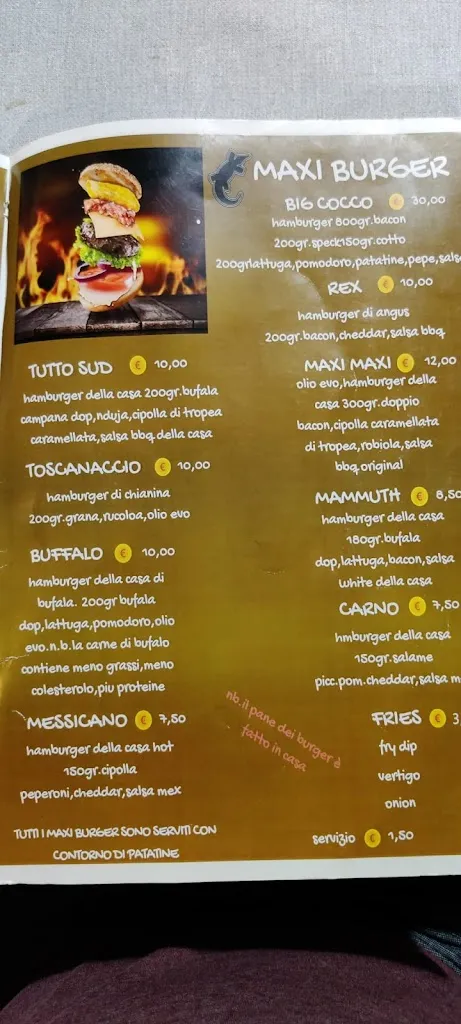 MAXI BURGER
BIG COCCO € 30,00
hamburger 800gr.bacon
200gr.speck150gr.cotto
200grlattuga,pomodoro,patatine,pepe,salsa
REX € 10,00
hamburger di angus
200gr.bacon,cheddar,salsa bbq
MAXI MAXI € 12,00
olio evo,hamburger della
casa 300gr.doppio
bacon,cipolla caramellata
di tropea,robiola,salsa
bbq original
MAMMUTH € 8,50
hamburger della casa
180gr.bufala
dop,lattuga,bacon,salsa
white della casa
CARNO € 7,50
hmburger della casa
150gr.salame
picc.pom.cheddar,salsa
FRIES € 3
fry dip
vertigo
onion
servizio € 1,50
TUTTO SUD € 10,00
hamburger della casa 200gr.bufala
campana dop,nduja,cipolla di tropea
caramellata,salsa bbq della casa
TOSCANACCIO € 10,00
hamburger di chianina
200gr.grana,rucoloa,olio evo
BUFFALO € 10,00
hamburger della casa di
bufala. 200gr bufala
dop,lattuga,pomodoro,olio
evo.n.b.la carne di bufalo
contiene meno grassi,meno
colesterolo,piu proteine
MESSICANO € 7,50
hamburger della casa hot
150gr.cipolla
peperoni,cheddar,salsa mex
nb.il pane dei burger è
fatto in casa
TUTTI I MAXI BURGER SONO SERVITI CON
CONTORNO DI PATATINE